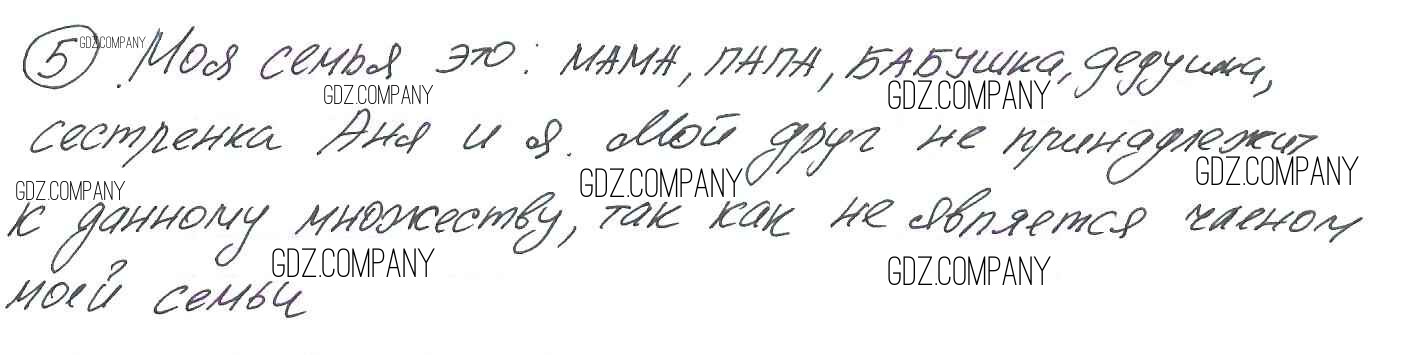 5 Моя семья это: МАМА, ПАПА, БАБУШКА, дедушка,
сестренка Аня и я. Мой друг не принадлежит
к данному множеству, так как не является членом
моей семьи
GDZ.COMPANY
GDZ.COMPANY
GDZ.COMPANY
GDZ.COMPANY
GDZ.COMPANY
GDZ.COMPANY
GDZ.COMPANY
GDZ.COMPANY